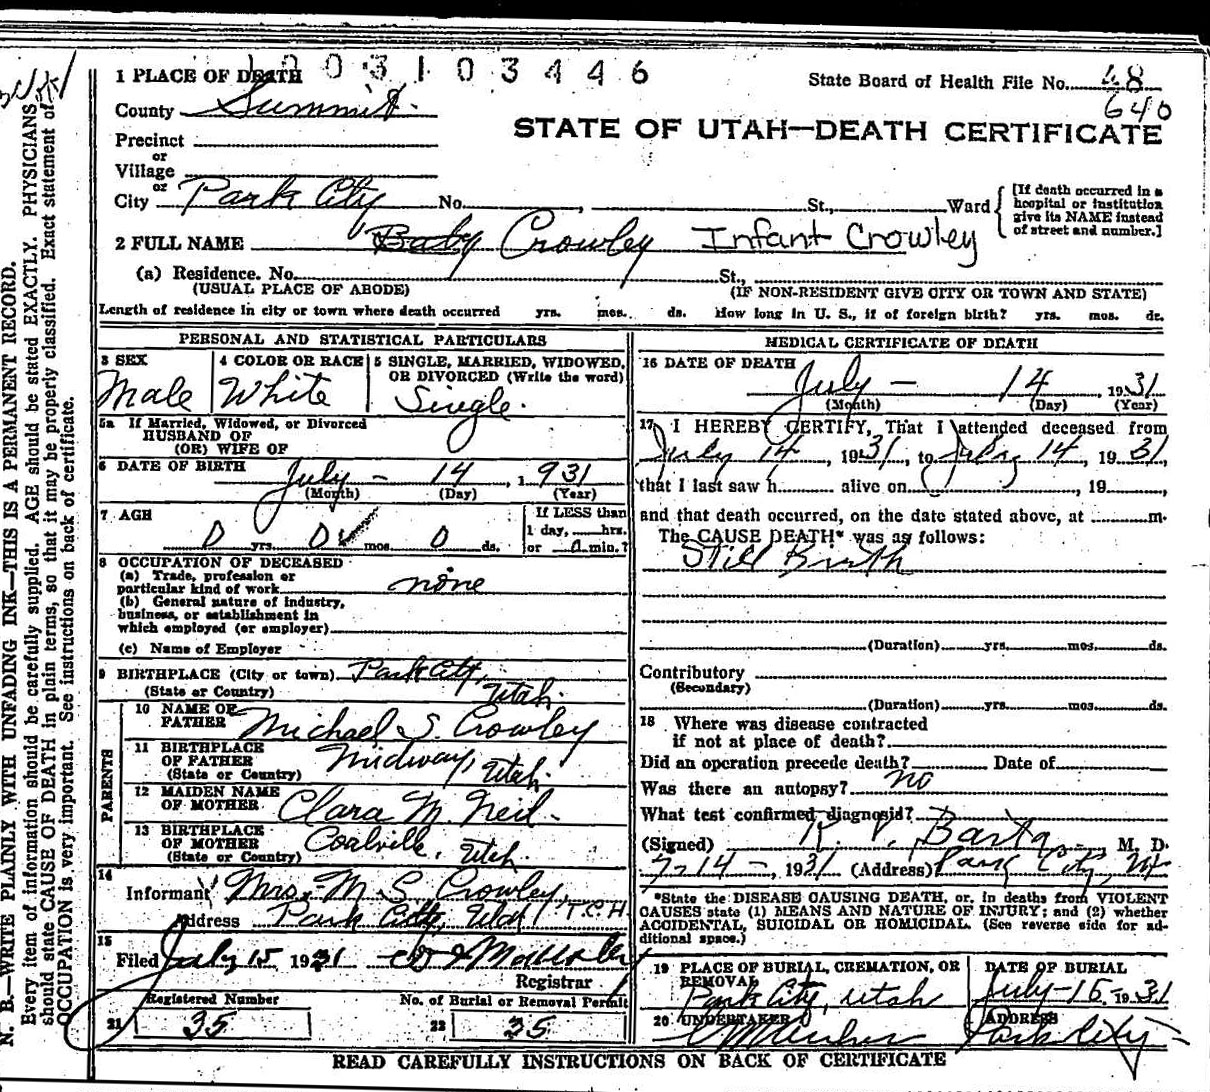 1003103446
1 PLACE OF DEATH
State Board of Health File No. 48
640
County Summit
STATE OF UTAH—DEATH CERTIFICATE
Precinct
or
Village
or
City Park City No. , St., Ward
[If death occurred in a
hospital or institution
give its NAME instead
of street and number.]
2 FULL NAME Baby Crowley Infant Crowley
(a) Residence. No. St.,
(USUAL PLACE OF ABODE) (IF NON-RESIDENT GIVE CITY OR TOWN AND STATE)
Length of residence in city or town where death occurred yrs. mos. ds. How long in U. S., if of foreign birth? yrs. mos. ds.
PERSONAL AND STATISTICAL PARTICULARS
3 SEX
Male
4 COLOR OR RACE
White
5 SINGLE, MARRIED, WIDOWED,
OR DIVORCED (Write the word)
Single.
5a If Married, Widowed, or Divorced
HUSBAND OF
(OR) WIFE OF
6 DATE OF BIRTH
July - 14, 1931
(Month) (Day) (Year)
7 AGE
0 yrs. 0 mos. 0 ds.
If LESS than
1 day, hrs.
or min.?
8 OCCUPATION OF DECEASED
(a) Trade, profession or
particular kind of work none
(b) General nature of industry,
business, or establishment in
which employed (or employer)
(c) Name of Employer
9 BIRTHPLACE (City or town) Park City,
(State or Country) Utah.
PARENTS
10 NAME OF
FATHER Michael S. Crowley
11 BIRTHPLACE
OF FATHER
(State or Country) Midway, Utah.
12 MAIDEN NAME
OF MOTHER Clara M. Neil.
13 BIRTHPLACE
OF MOTHER
(State or Country) Coalville, Utah.
14
Informant Mrs. M. S. Crowley,
Address Park City, Utah T.C.H.
15
Filed July 15 1931
Registrar
Registered Number
21 35
No. of Burial or Removal Permit
22 35
MEDICAL CERTIFICATE OF DEATH
16 DATE OF DEATH
July - 14 1931
(Month) (Day) (Year)
17 I HEREBY CERTIFY, That I attended deceased from
July 14, 1931, to July 14, 1931,
that I last saw h alive on , 19 ,
and that death occurred, on the date stated above, at m.
The CAUSE DEATH* was as follows:
Still Birth
(Duration) yrs. mos. ds.
Contributory
(Secondary)
(Duration) yrs. mos. ds.
18 Where was disease contracted
if not at place of death?
Did an operation precede death? Date of
Was there an autopsy? no
What test confirmed diagnosis?
(Signed) R. V. Barta, M. D.
7-14-, 1931 (Address) Park City, Ut
*State the DISEASE CAUSING DEATH, or, in deaths from VIOLENT
CAUSES state (1) MEANS AND NATURE OF INJURY; and (2) whether
ACCIDENTAL, SUICIDAL OR HOMICIDAL. (See reverse side for ad-
ditional space.)
19 PLACE OF BURIAL, CREMATION, OR
REMOVAL
Park City, Utah
DATE OF BURIAL
July-15-1931
20 UNDERTAKER
ADDRESS
Park City
READ CAREFULLY INSTRUCTIONS ON BACK OF CERTIFICATE
N. B.—WRITE PLAINLY WITH UNFADING INK—THIS IS A PERMANENT RECORD.
Every item of information should be carefully supplied. AGE should be stated EXACTLY. PHYSICIANS
should state CAUSE OF DEATH in plain terms, so that it may be properly classified. Exact statement of
OCCUPATION is very important. See instructions on back of certificate.